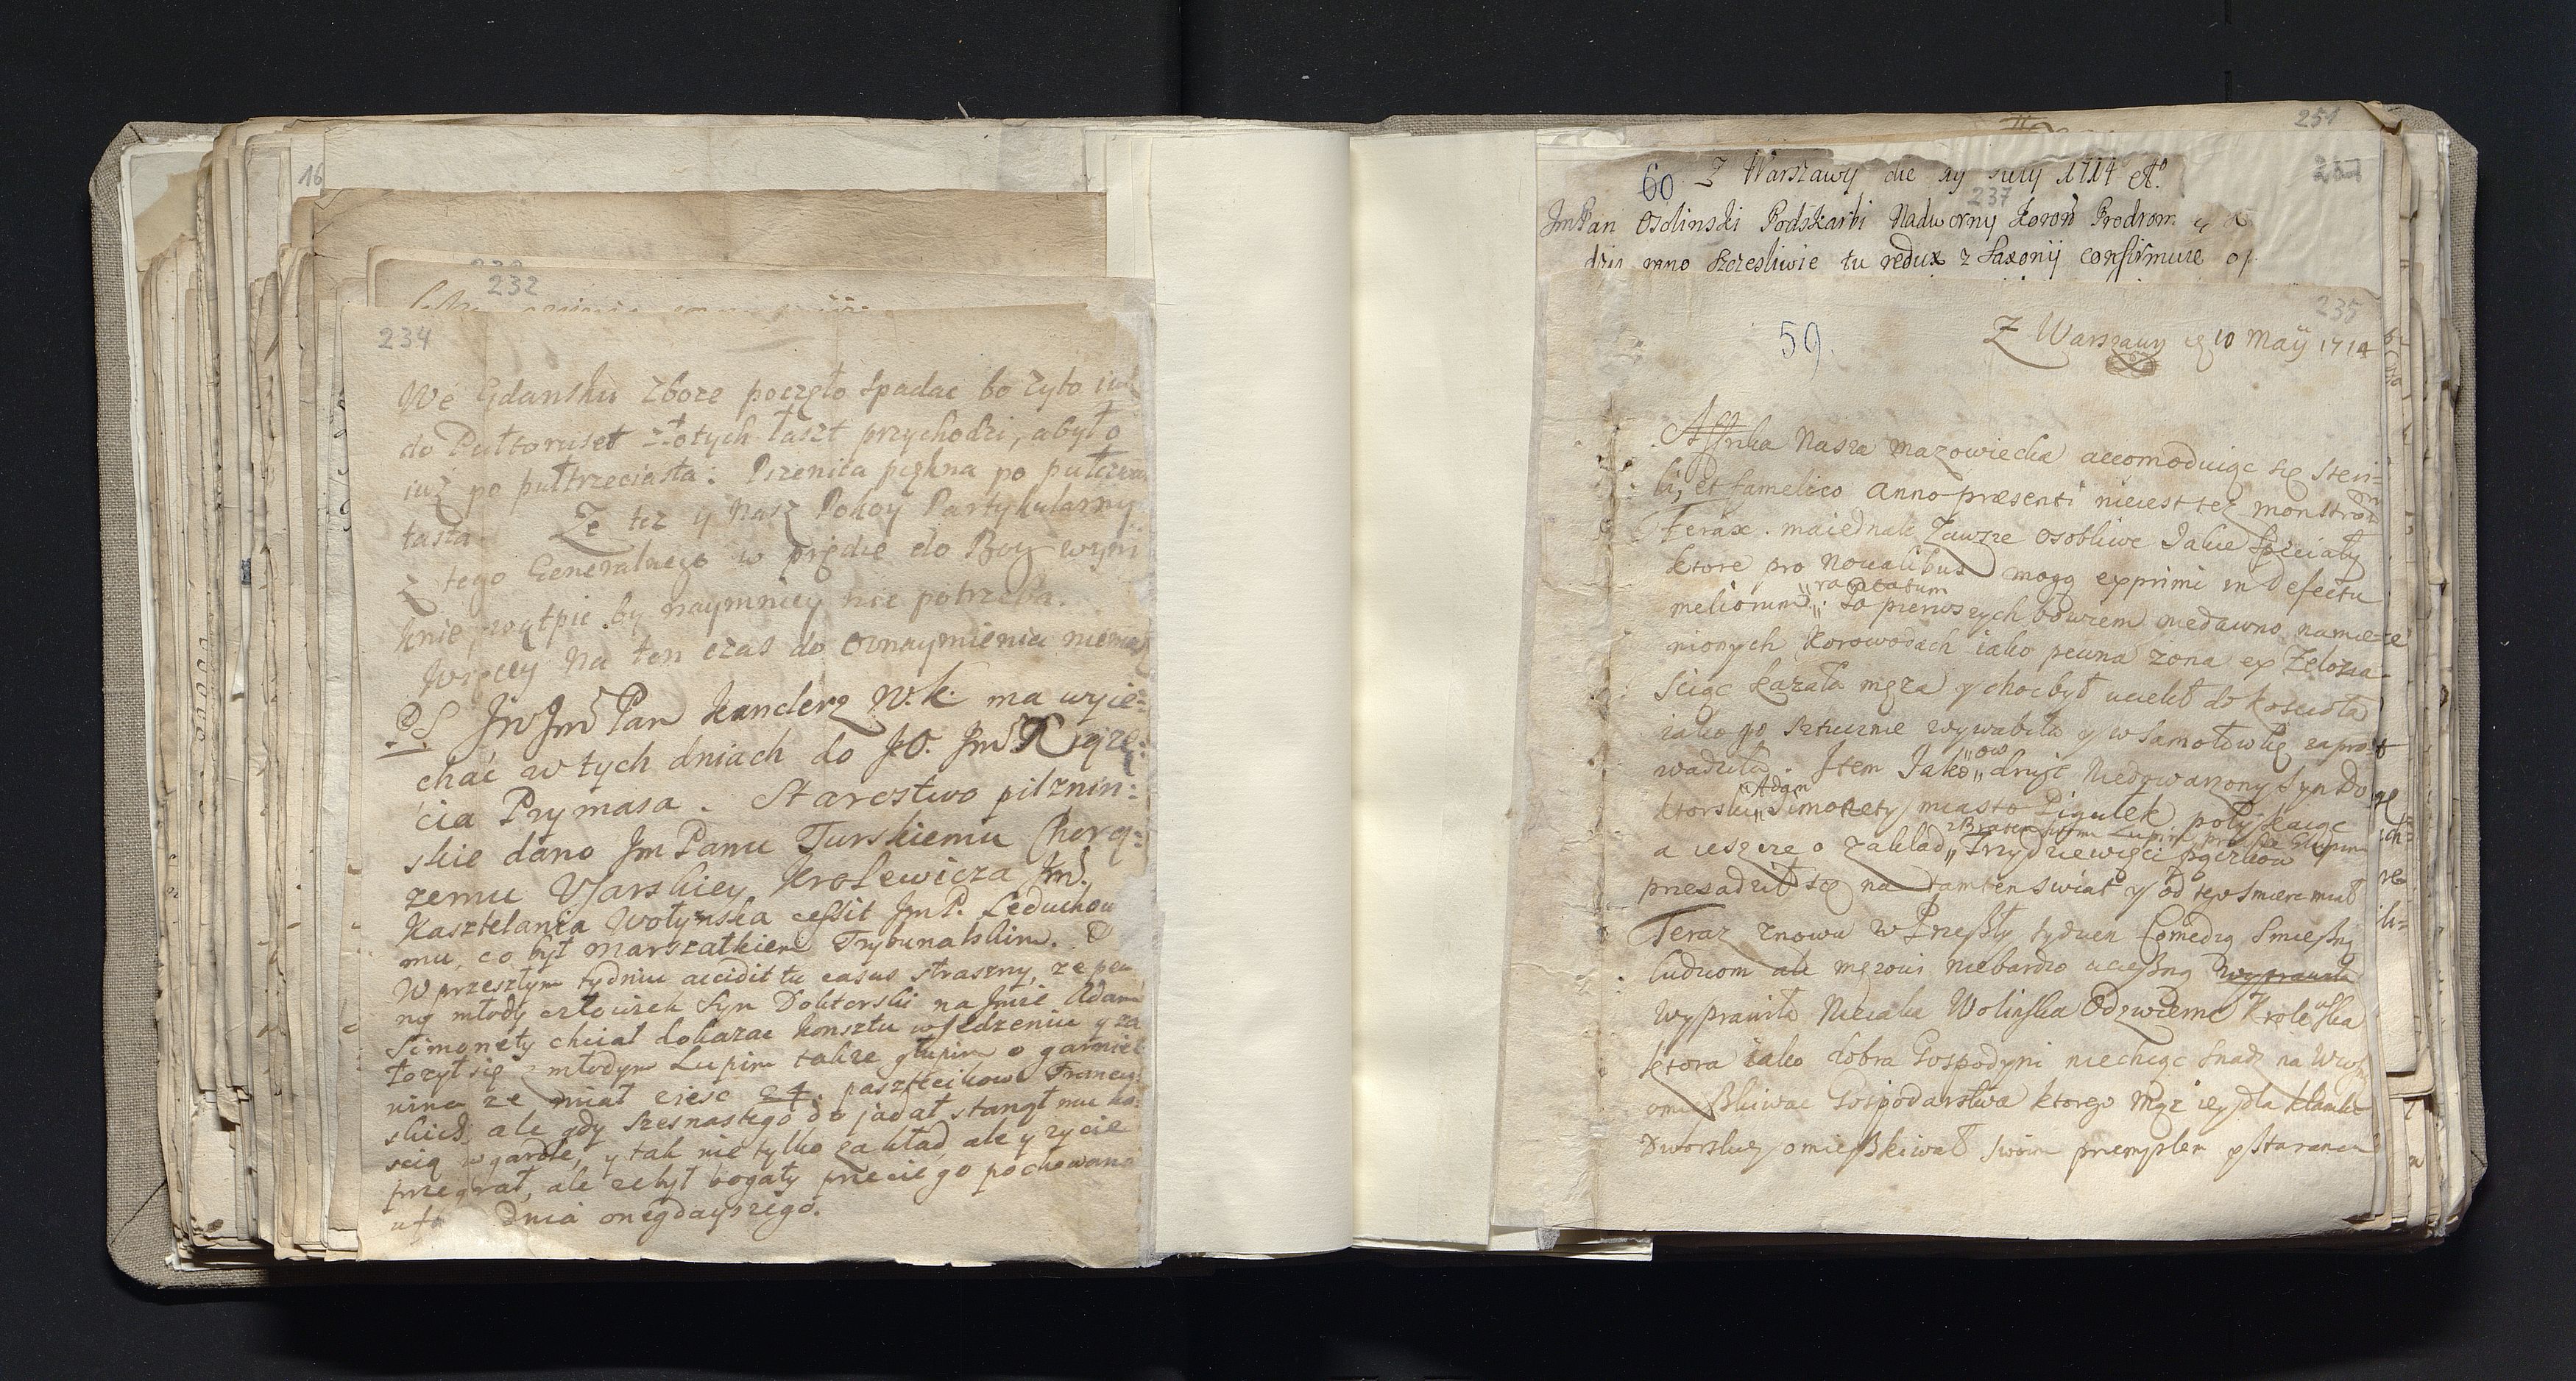 16
232
234
We Gdansku zboze poczęło spadac bo zyto iuż
do Pułtoruset złotych łaszt przychodzi, abyło
iuż po pułtrzeciasta: Pszenica piękna po
tasta. Ze tez y nasz Pokoy Partykularny
z tego Generalnego w prędce do Boy wyni
knie, wątpic by naymniey nie potrzeba.
Więcey na ten czas do oznaymienia niemasz
PS JW Jm Pan Kanclerz W. k. ma wyie=
chać w tych dniach do JO. Jm Xiąże=
cia Prymasa. Starostwo pilznin=
skie dano Jm Panu Turskiemu Chorą=
zemu Usarskiey Krolewicza Jm.
Kasztelania Wołynska cessit Jm P. Leduchow
mu, co był marszałkiem Trybunalskim.
W przeszłym tydniu accidit tu casus straszny, ze pew
ny młody człowiek Syn Doktorski na Jmie Adam
Simonety chciał dokazac konsztu w jedzeniu y za
łozył się z młodym Lupim takze głupim o garniec
wina ze miał ziesc 24. pasztecikow Francu
skich, ale gdy szesnastego do jadał stanął mu ko
scią w gardle, y tak nie tylko zakład, ale y zycie
przegrał, ale ze był bogaty przecie go pochowano
dnia onegdayszego.
251
60 Z Warszawy die 19 July 1714 Ao.
237
Jm Pan Osolinski Podskarbi Nadworny Koron Prodrom
dzis rano szczesliwie tu redux z Saxonij confirmuie
235
59.
Z Warszawy 10 Maij 1714
Affrika Nasza mazowiecka accomoduiąc się Steri=
li, et famelico anno præsenti nieiest tez monstror
ferax. maiednak zawsze osobliwe Jakie speciały
ktore pro Novalibus mogą exprimi in defectu
raritatum
meliorum. Po pierwszych bowiem niedawno namie=
nionych korowodach iako pewna zona ex Zelozia
sciąc kazała męza y choc był uciekł do koscioła
iako go sztucznie wywabiła y w Samołowkę zapro
wadziła. Item Jako ow drugi Niedowarzony Syn Do
Adam
ktorski Simonety miasto Pigułek połykaiąc
a ieszcze o zakład Trzydziewięci pączkow
przesadził się na tamten swiat y od tey smierc miał
Teraz znowu w Przeszły tydzien Comedią smieszną
ludziom ale męzowi niebardzo ucieszną wyprawiła
wyprawiła Nieiaka Wolinska Odzwierne Krolewska
ktora iako dobra Gospodyni niechcąc snadz na
omieszkiwac Gospodarstwa ktorego Mąz iey dla
Dworskiey omieszkiwał swoim przemysłem y staraniem